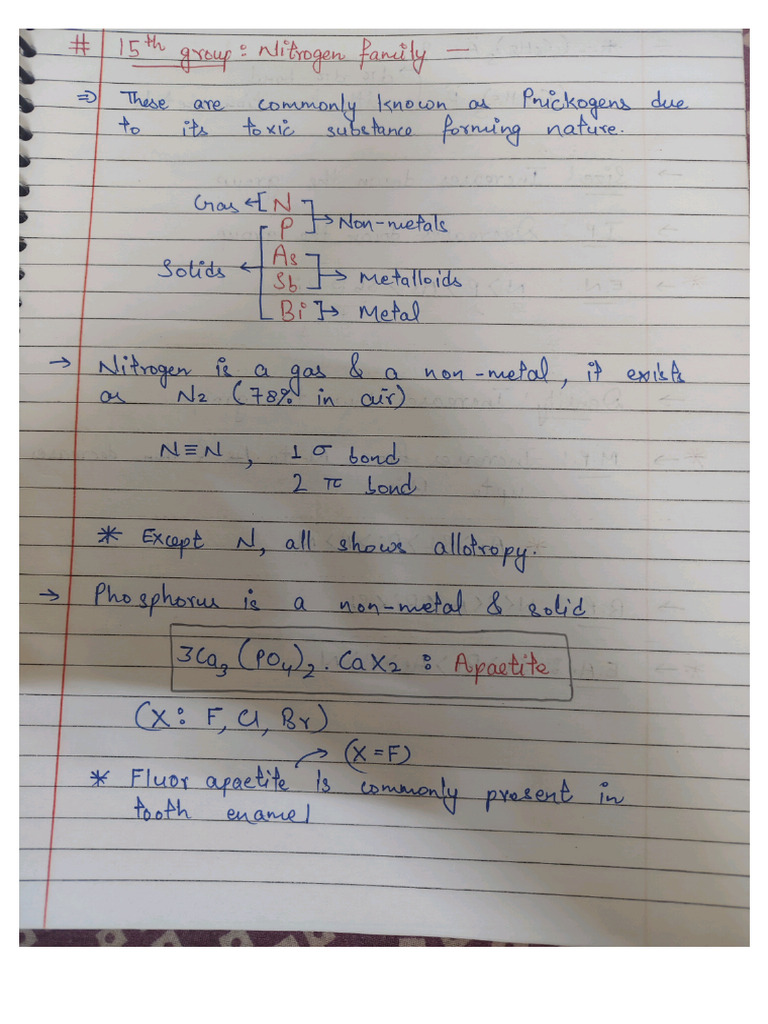 # 15th group : Nitrogen family —
⇒ These are commonly known as Pnickogens due
to its toxic substance forming nature.
Gas ← [ N ] → Non-metals
P
Solids ← [ As ] → Metalloids
Sb
Bi ] → Metal
→ Nitrogen is a gas & a non-metal, it exists
as N2 (78% in air)
N≡N , 1 σ bond
2 π bond
* Except N, all shows allotropy.
→ Phosphorus is a non-metal & solid
3Ca3(PO4)2 . CaX2 : Apaetite
(X: F, Cl, Br)
→ (X = F)
* Fluor apaetite is commonly present in
tooth enamel